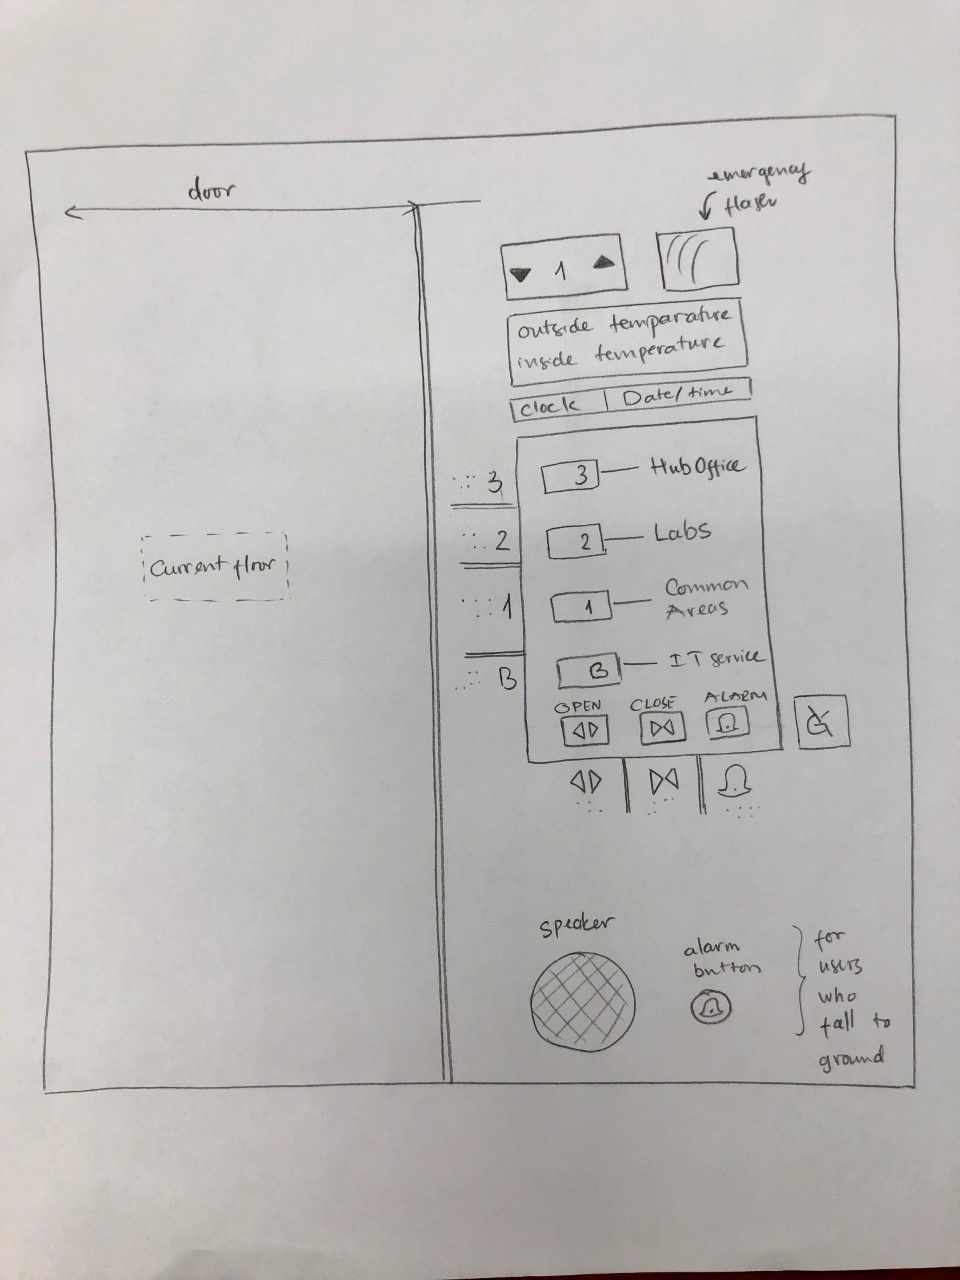 door
emergency
flaser
1
outside temparature
inside temperature
clock | Date/time
3
3
Hub Office
2
2
Labs
1
1
Common
Areas
B
B
IT service
OPEN
CLOSE
ALARM
Current floor
speaker
alarm
button
for
users
who
fall to
ground